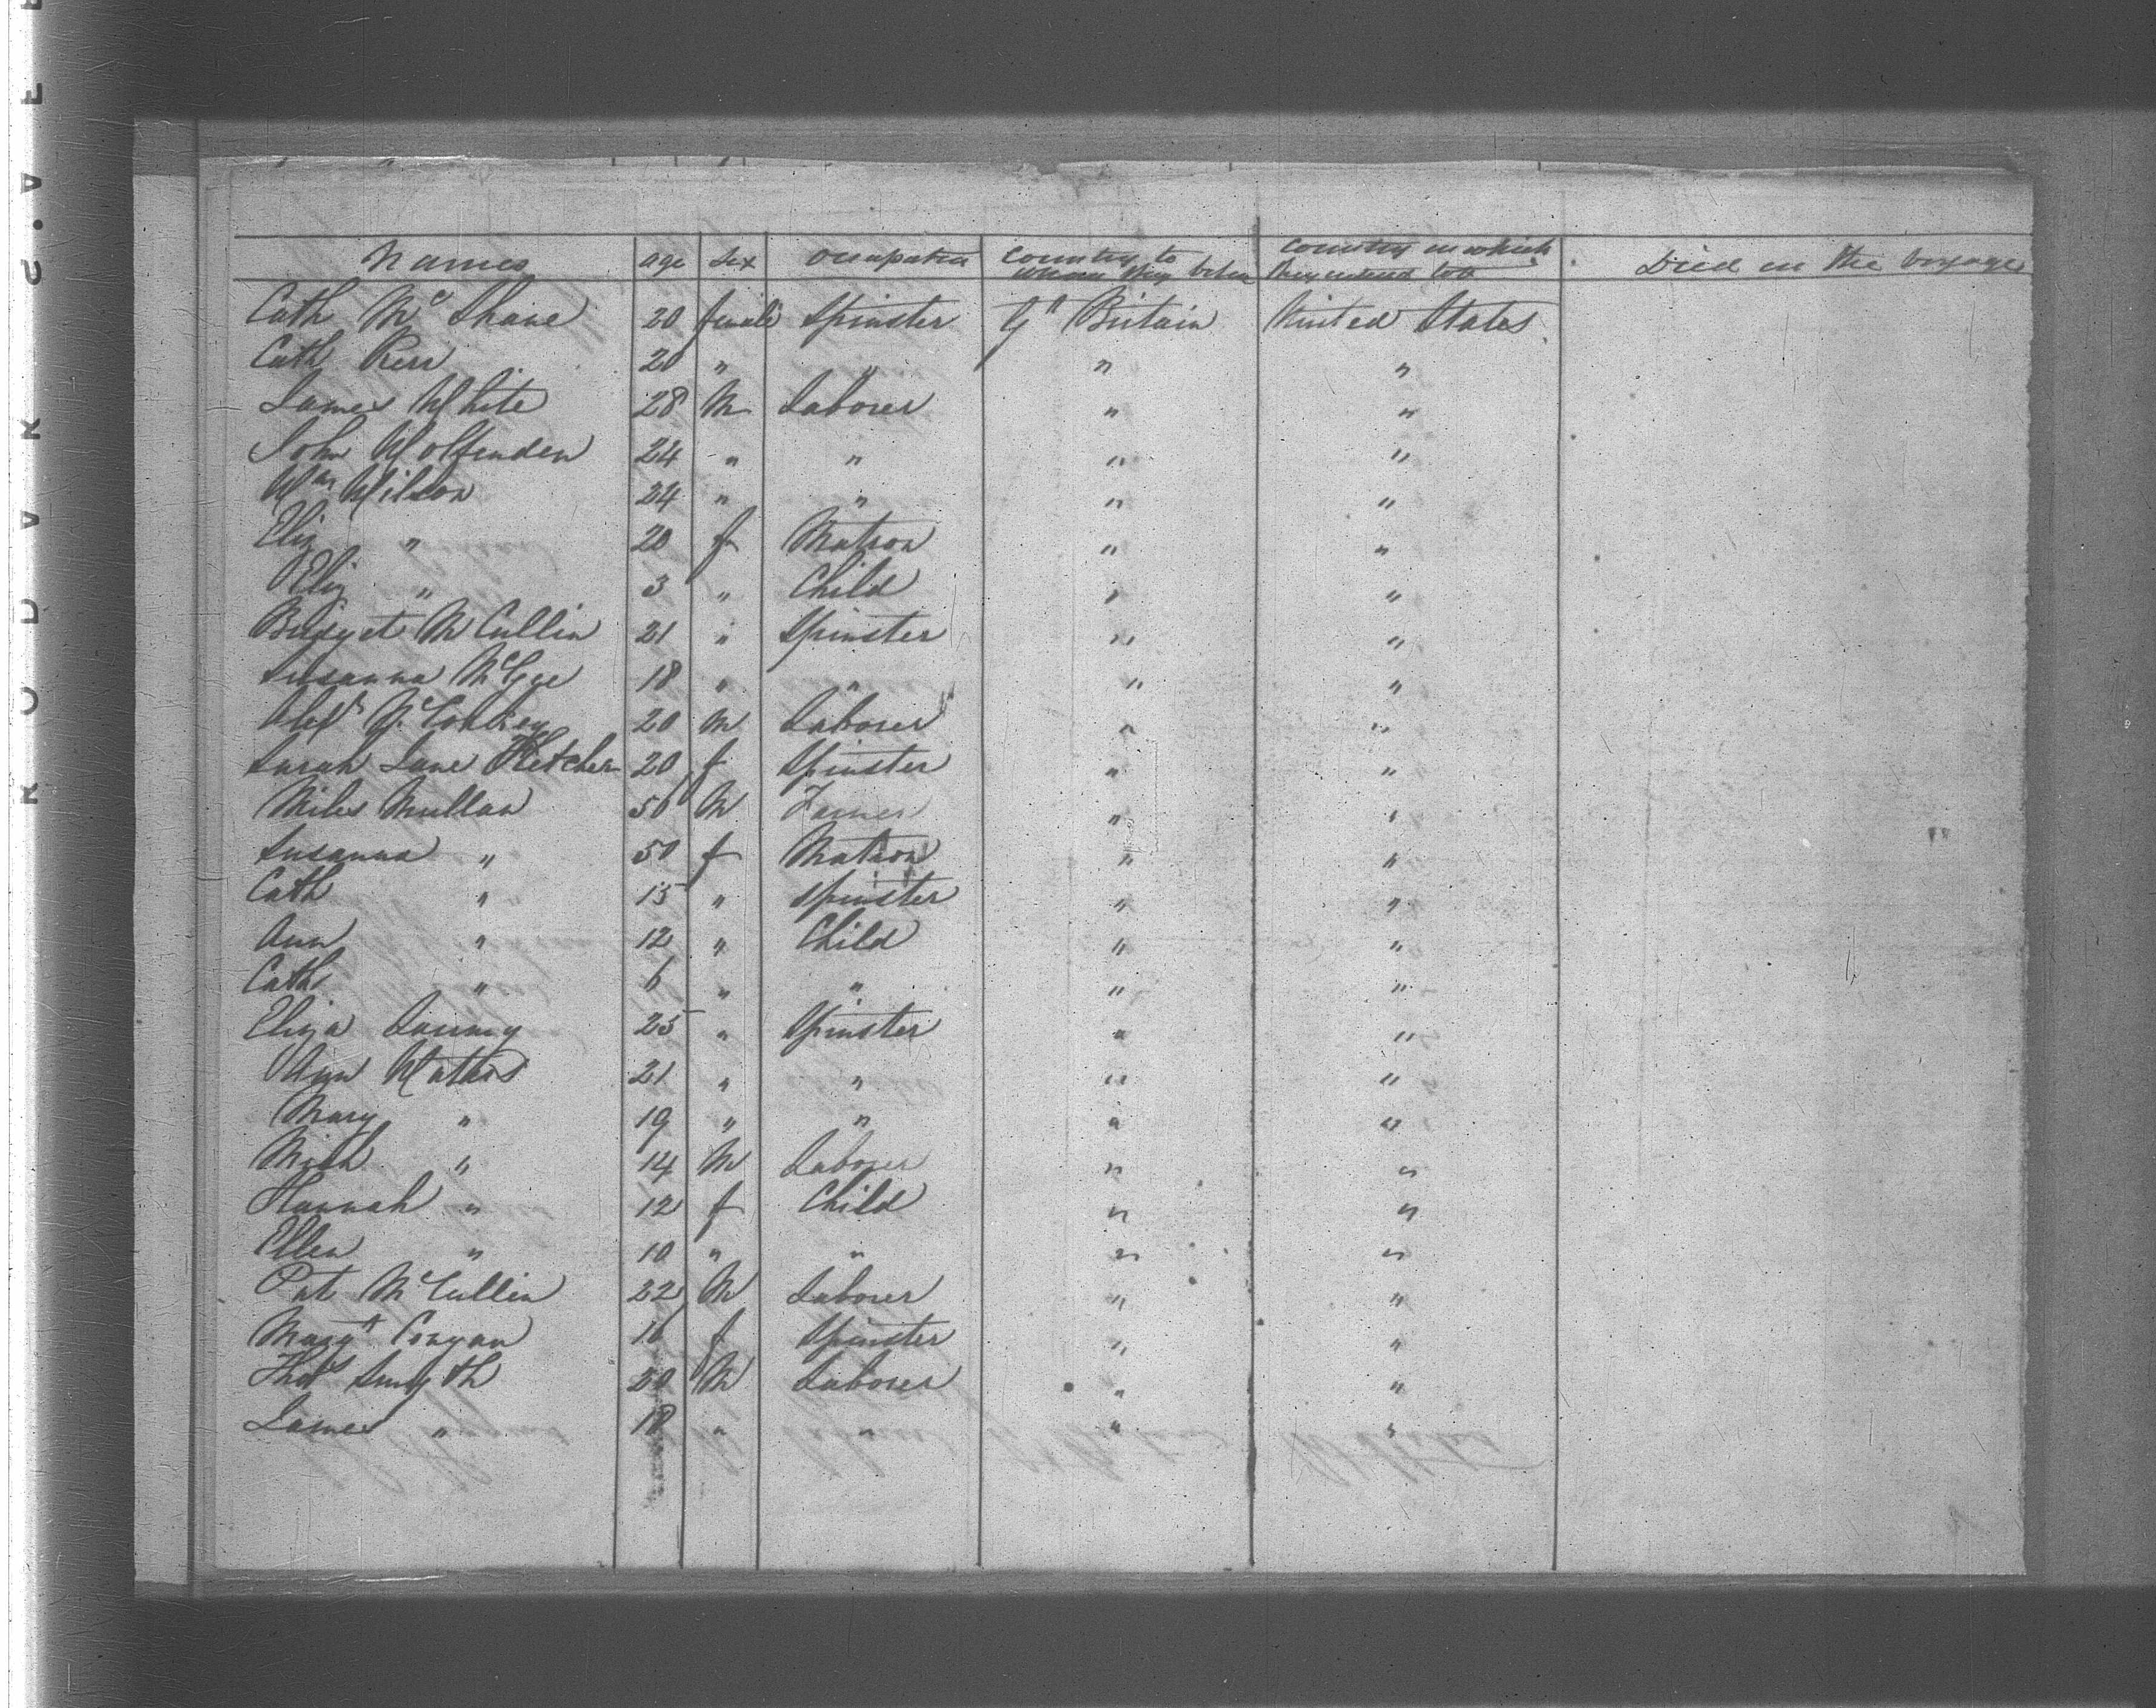 Names age Sex Occupation Country to which they belon Country in which they intend to Died on the Voyage
Cath McShane 20 female Spinster Gt Britain United States
Cath Kerr 20 " " " "
James White 28 M Laborer " "
John Wolfenden 24 " " " "
Wm Wilson 24 " " " "
Eliz " 20 f Matron " "
Eliz " 3 " Child " "
Bridget McCullin 21 " Spinster " "
Susanna McGee 18 " " " "
Alexr 20 M Laborer " "
Sarah Jane Fletcher 20 f Spinster " "
Miles Mullan 56 M Farmer " "
Susanna " 50 f Matron " "
Cath " 15 " Spinster " "
Ann " 12 " Child " "
Cath " 6 " " " "
Eliza 25 " Spinster " "
Ann Waters 21 " " " "
Mary " 19 " " " "
Mich " 14 M Laborer " "
Hannah " 12 f Child " "
Ellen " 10 " " " "
Pat McCullin 22 M Laborer " "
Margt Conyan 16 f Spinster " "
Thos Smyth 20 M Laborer " "
James " 18 " " " "